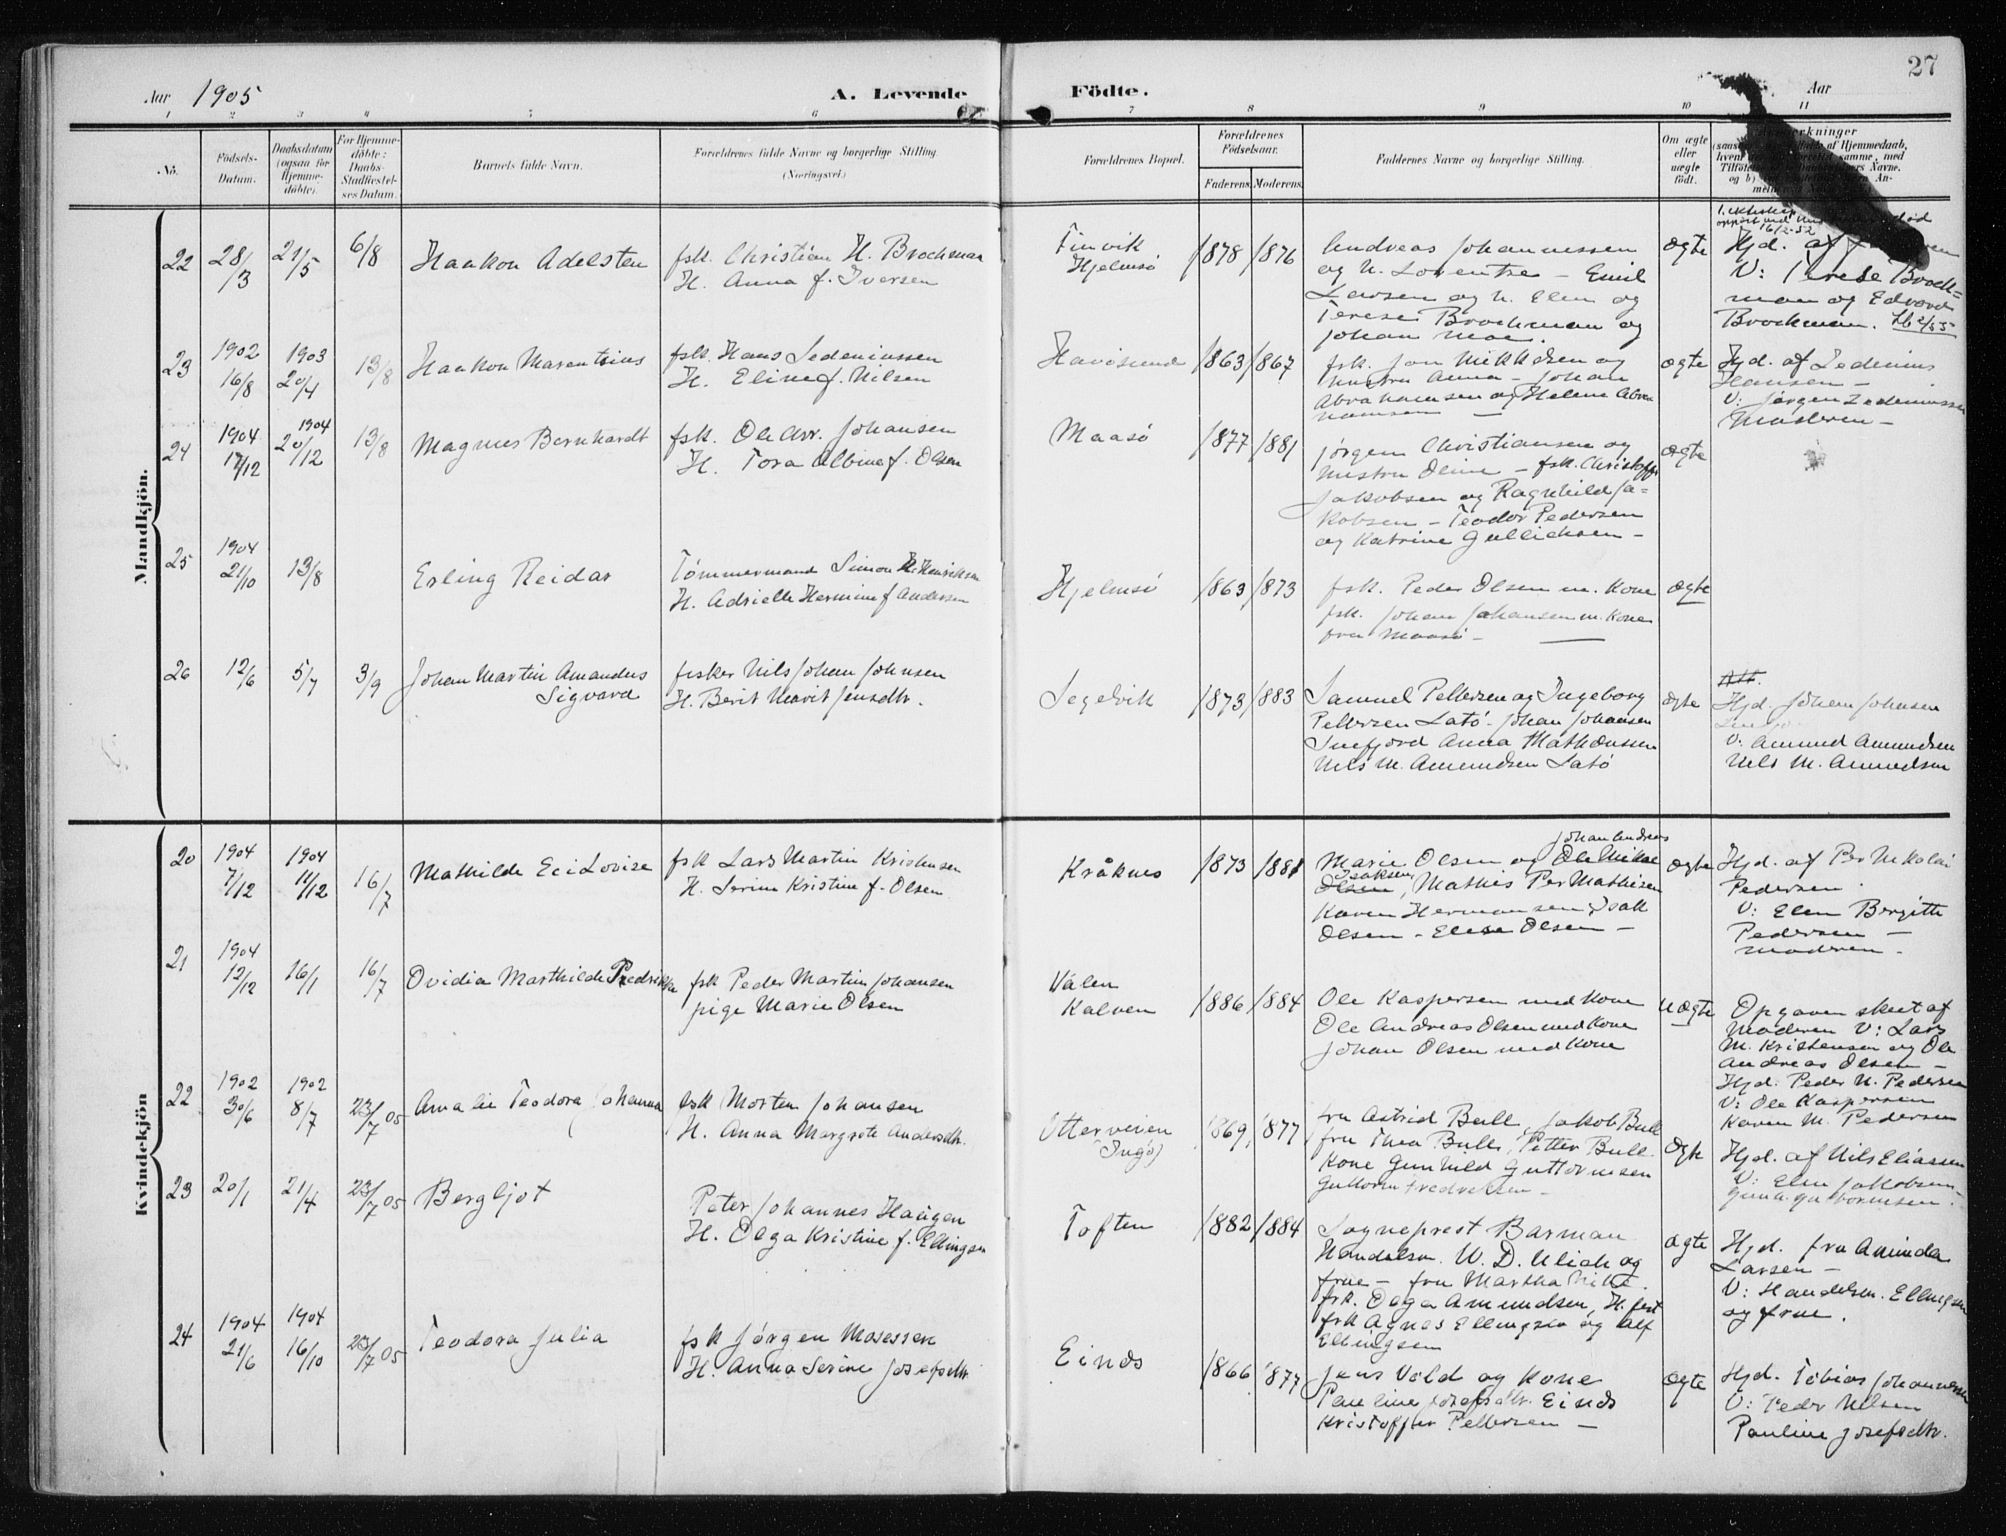 27
Aar 1905
A. Levende Födte.
Aar
1 2 3 4 5 6 7 8 9 10 11
No.
Födsels-Datum.
Daabsdatum (ogsaa for Hjemme-döbte).
For Hjemme-döbte: Daabs-Stadfæstel-ses Datum.
Barnets fulde Navn.
Forældrenes fulde Navne og borgerlige Stilling.
(Næringsvei.)
Forældrenes Bopæl.
Forældrenes Födselsaar.
Faderens. Moderens.
Faddernes Navne og borgerlige Stilling.
Om ægte eller uægte födt.
Mandkjön.
22 28/3 21/5 6/8 Haakon Adelsten
fsk. Christian H. Brochman
H. Anna f. Iversen
Finvik
Hjelmsö
1878 1876
Andreas Johannessen
og H. Lorentse – Emil
Larsen og H. Elen og
Terese Brochman og
Johan Moe.
ægte
16/2-52
Hjd. af
V: Terese Broch=
man og Edvard
Brochman.
23 1902 16/8 1903 20/4 13/8 Haakon Marentius
fsk. Hans Sedeniussen
H. Eline f. Nilsen
Havösund
1863 1867
fsk. Jon Mikkelsen og
hustru Anna – Johan
Abrahamsen og Helene Abra
hamsen –
ægte
Hjd. af Zedenius
Hansen –
V: Jørgen Zedeniussen
Moderen –
24 1904 17/12 1904 20/12 13/8 Magnus Bernhardt
fsk. Ole Arr. Johansen
H. Tora Albine f. Olsen
Maasö
1877 1881
Jørgen Christiansen og
hustru Oline – fsk. Christoffer
Jakobsen og Ragnhild Ja=
kobsen – Teodor Pedersen
og Katrine Gullichsen –
ægte
25 1904 21/10 13/8 Erling Reidar
Tømmermand Simon H. Henriksen
H. Adrielle Hermine f Andersen
Hjelmsö
1863 1873
fsk. Peder Olsen m. Kone
fsk. Johan Johansen m. Kone
fra Maasö –
ægte
26 12/6 5/7 3/9 Johan Martin Amandus
Sigvard
fisker Nils Johan Johnsen
H. Berit Marit Jensdtr.
Segelvik
1873 1883
Samuel Pettersen og Ingeborg
Pettersen Latö. Johan Johansen
Snefjord Anna Mathæussen
Nils M. Amundsen Latö
ægte
Hjd. Johan Johnsen
V: Amund Amundsen
Nils M. Amundsen
Kvindekjön
20 1904 7/12 1904 11/12 16/7 Mathilde Eli Lovise
fsk Lars Martin Kristensen
H. Serine Kristine f. Olsen
Kråknes
1873 1881
Johan Andreas
Marie Olsen og Ole Mikal
Isaksen
Olsen, Mathis Per Mathisen
Karen Hermansen, Isak
Olsen – Elise Olsen –
ægte
Hjd. af Per Nikolai
Pedersen.
V: Elen Bergitte
Pedersen –
moderen.
21 1904 12/12 16/1 16/7 Ovidia Marthilde Fredrikke
fsk Peder Martin Johansen
pige Marie Olsen
Valen
Kalven
1886 1884
Ole Kaspersen med Kone
Ole Andreas Olsen med Kone
Johan Olsen med Kone
uægte
Opgaven skeet af
Moderen V: Lars
M. Kristensen og Ole
Andreas Olsen –
22 1902 30/6 1902 8/7 23/7 05 Amalie Teodora Johanna
fsk Morten Johansen
H. Anna Margrete Andersdtr.
Ytterveien
(Ingö)
1869 1877
fru Astrid Bull, Jakob Bull
fru Thea Bull, Petter Bull
Kone Gunhild Guttormsen
Guttorm Fredriksen –
ægte
Hjd. Peder N. Pedersen
V: Ole Kaspersen
Karen M. Pedersen
Hjd. af Nils Eliassen
V: Elen Jakobsen
23 20/1 21/4 23/7 05 Bergljot
Peter Johannes Haugen
H. Olga Kristine f. Ellingsen
Toften
1882 1884
Sogneprest Barman
Handelsm. W. D. Ulich og
frue – fru Martha
frk. Olga Amundsen, H. fest
frk Agnes Ellingsen og Alf
Ellingsen
ægte
Hjd. fru Aminda
Larsen –
V: Handelsm. Ellingsen
og frue.
24 1904 21/6 1904 16/10 23/7 05 Teodora Julia
fsk Jørgen Mosessen
H. Anna Serine Josefsdtr.
Einds
1866 1877
Jens Vold og Kone
Pauline Josefsdtr. Einds
Kristoffer Pettersen –
ægte
Hjd. Tobias Johannessen
V: Peder Nilsen
Pauline Josefsdtr.